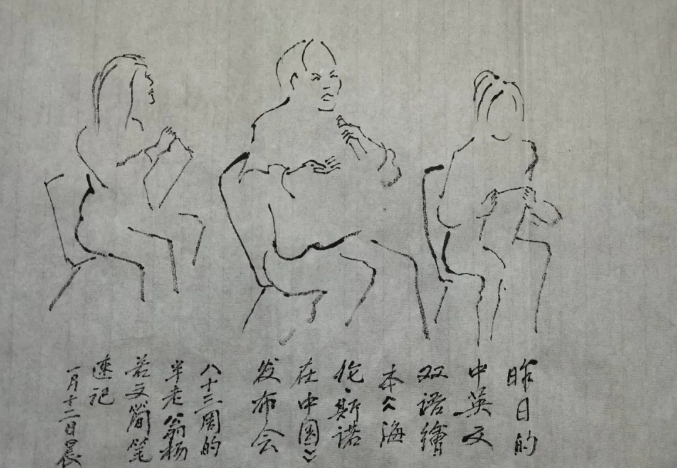 昨日的
中英文
双语繪
本《海
伦·斯诺
在中国》
发布会
八十三周的
半老翁杨
若文简笔
速记
一月十二日晨